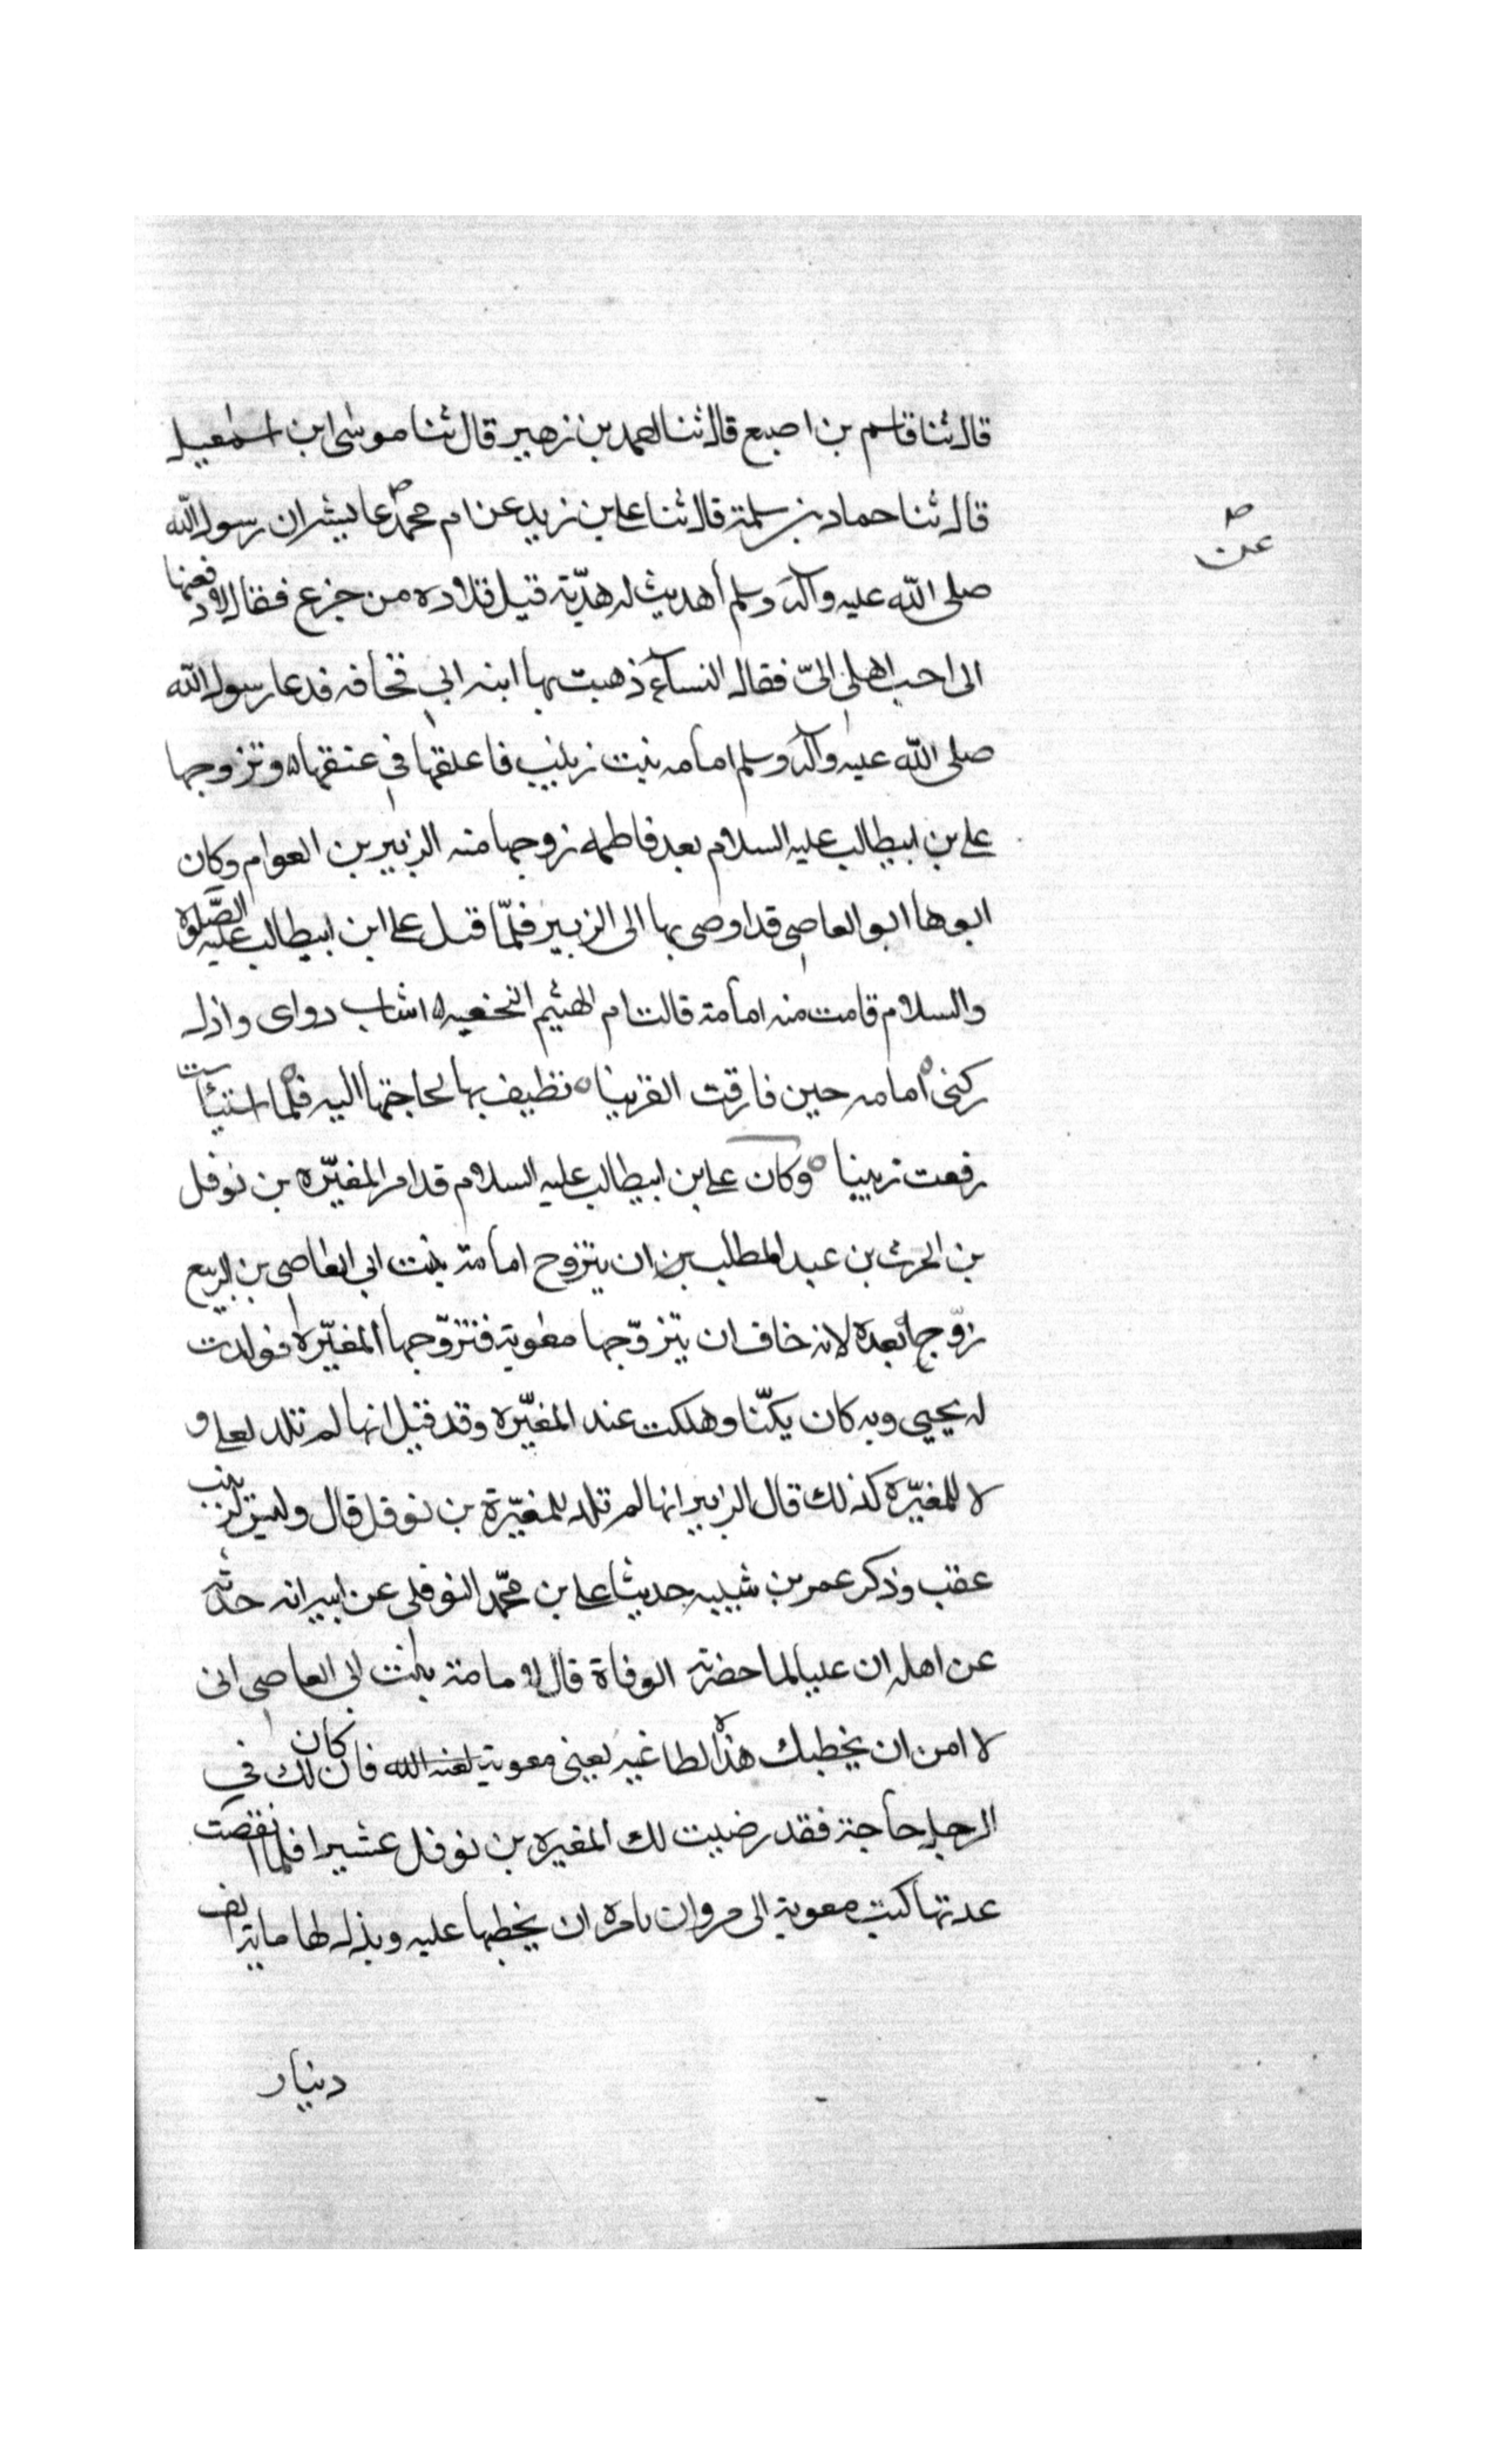 قال ثنا قاسم بن اصبع قال ثنا احمد بن زهير قال ثنا موسى ابن اسمعيل
قال ثنا حماد بن سلمة قال ثنا علي بن زيد عن ام محمد عايشه ان رسول الله
عن
صلى الله عليه وآله وسلم أهديت له هديّة قيل قلاده من جزع فقال لادفعنها
الى احب اهلي اليّ فقال النسآء ذهبت بها ابنه ابي قحافه فدعا رسول الله
صلى الله عليه وآله وسلم امامه بنت زينب فاعلقها في عنقها ٥ وتزوجها
علي بن ابيطالب عليه السلام بعد فاطمه زوجها منه الزبير بن العوام وكان
ابوها ابو العاصي قد اوصى بها الى الزبير فلمّا قتل علي ابن ابيطالب عليه الصّلوة
والسلام قامت منه امامة قالت ام الهثيم النخعيه ٥ اشاب دواى واذل
ركنى امامه حين فارقت القرينا ٥ تطيف بها لحاجتها اليه فلما استيأست
رفعت رنينا ٥ وكان علي بن ابيطالب عليه السلام قد امر المغيّره بن نوفل
بن الحرث بن عبد المطلب بن ان يتزوج امامة بنت ابي العاصي بن الربيع
زوّجها بعده لانه خاف ان يتزوّجها معوية فتزوّجها المغيّرة فولدت
له يحيي وبه كان يكنّا وهلكت عند المغيّره وقد قيل انها لم تلد لعلي و
لا للمغيّره كذلك قال الزبير انها لم تلد للمغيّرة بن نوفل قال وليس لزينب
عقب وذكر عمر بن شيبه حديثا علي بن محمّد النوفلي عن ابيه انه حدثه
عن اهله ان عليا لما حضرته الوفاة قال لامامة بنت ابي العاصي اني
لا امن ان يخطبك هذا لطاغيه يعني معوية لعنه الله فان كان لك في
الرجل حاجة فقد رضيت لك المغيره بن نوفل عشيرا فلما انقضت
عدتها كتب معوية الى مروان يامره ان يخطبها عليه وبذل لها ماية الف
دينار